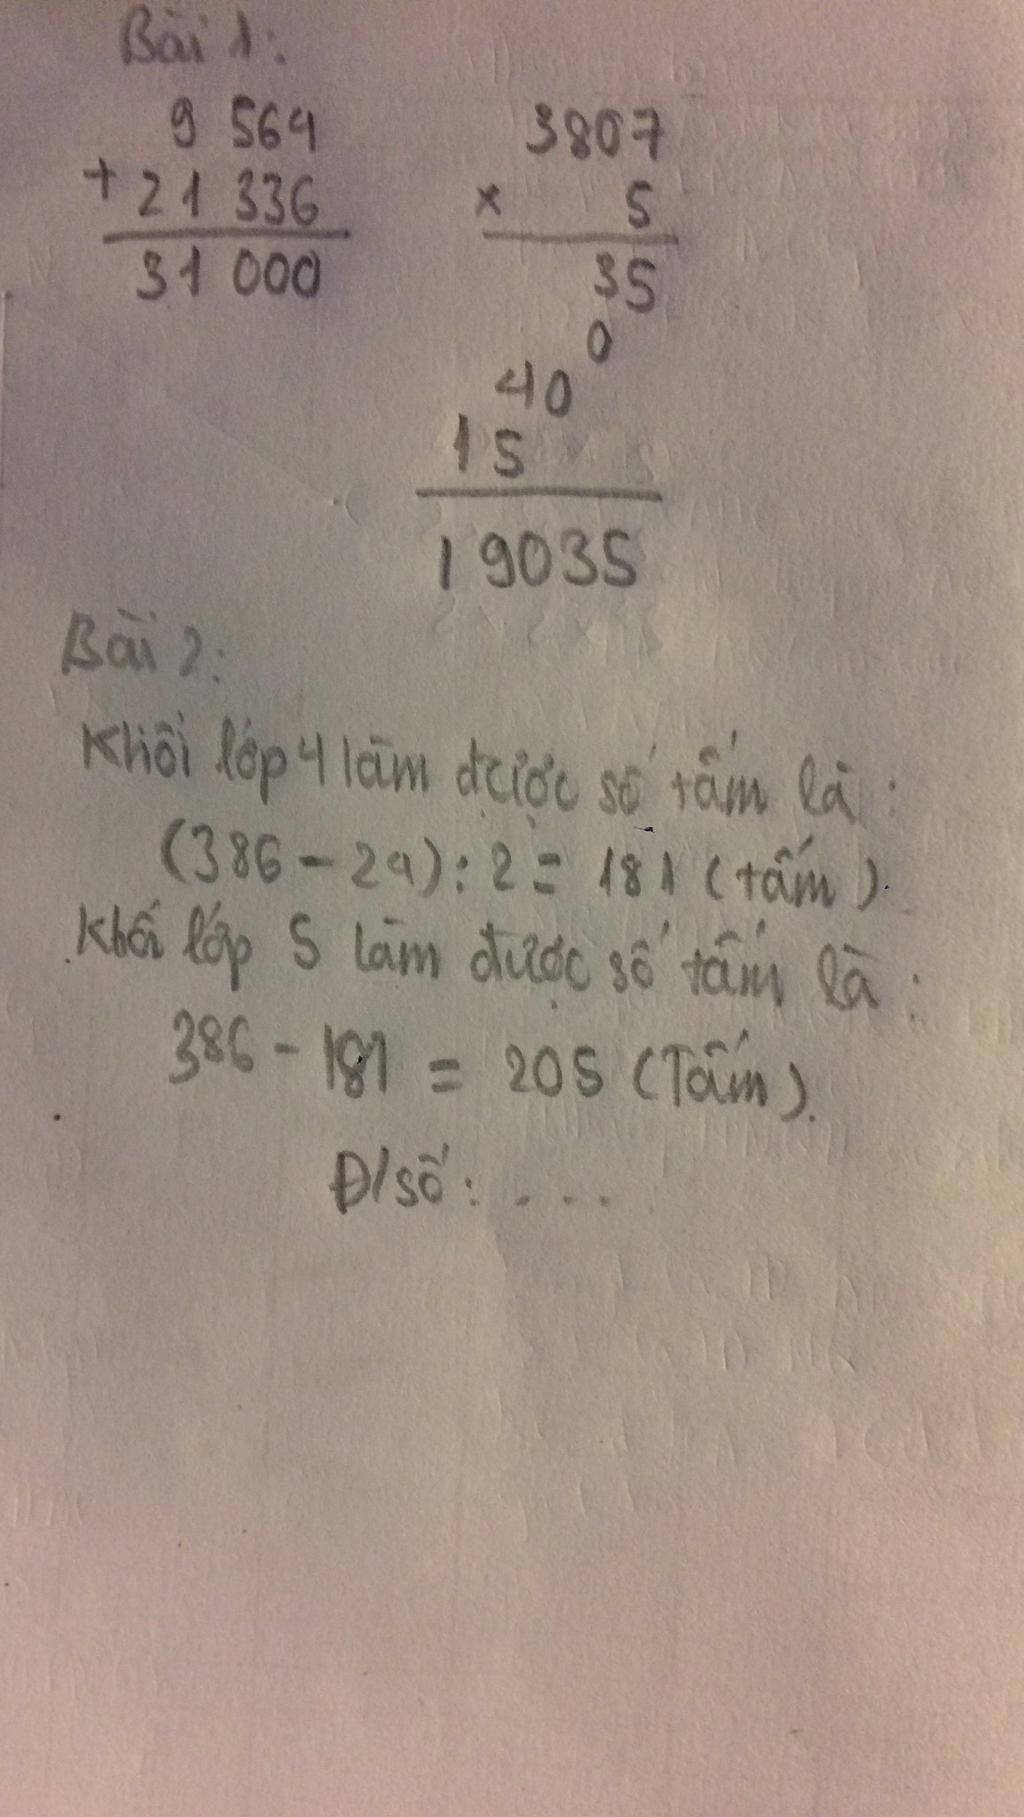 Bài 1:
9 564
+ 21 336
31 000
3807
× 5
35
0
40
15
19035
Bài 2:
Khối lớp 4 làm được số tấm là:
(386 - 24) : 2 = 181 (tấm).
Khối lớp 5 làm được số tấm là:
386 - 181 = 205 (Tấm).
Đ/số: . . . .